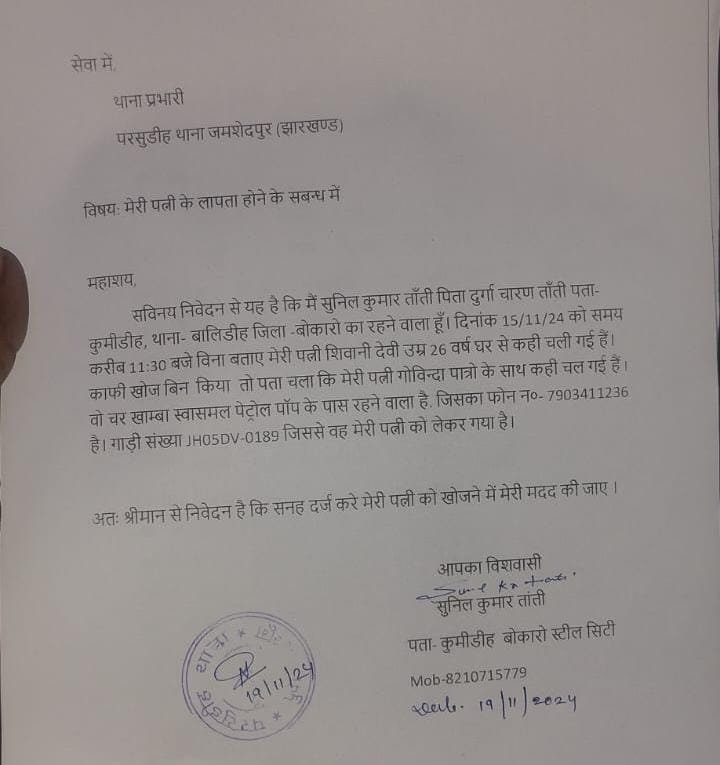 सेवा में,
थाना प्रभारी
परसुडीह थाना जमशेदपुर (झारखण्ड)
विषय: मेरी पत्नी के लापता होने के सबन्ध में
महाशय,
सविनय निवेदन से यह है कि मैं सुनिल कुमार ताँती पिता दुर्गा चारण ताँती पता-
कुमीडीह, थाना- बालिडीह जिला -बोकारो का रहने वाला हूँ। दिनांक 15/11/24 को समय
करीब 11:30 बजे विना बताए मेरी पत्नी शिवानी देवी उम्र 26 वर्ष घर से कही चली गई हैं।
काफी खोज बिन किया तो पता चला कि मेरी पत्नी गोविन्दा पात्रो के साथ कही चल गई हैं।
वो चर खाम्बा स्वासमल पेट्रोल पॉप के पास रहने वाला है. जिसका फोन न०- 7903411236
है। गाड़ी संख्या JH05DV-0189 जिससे वह मेरी पत्नी को लेकर गया है।
अतः श्रीमान से निवेदन है कि सनह दर्ज करे मेरी पत्नी को खोजने में मेरी मदद की जाए ।
आपका विशवासी
सुनिल कुमार तांती
पता- कुमीडीह बोकारो स्टील सिटी
Mob-8210715779
19/11/2024
परसुडीह थाना
19/11/24